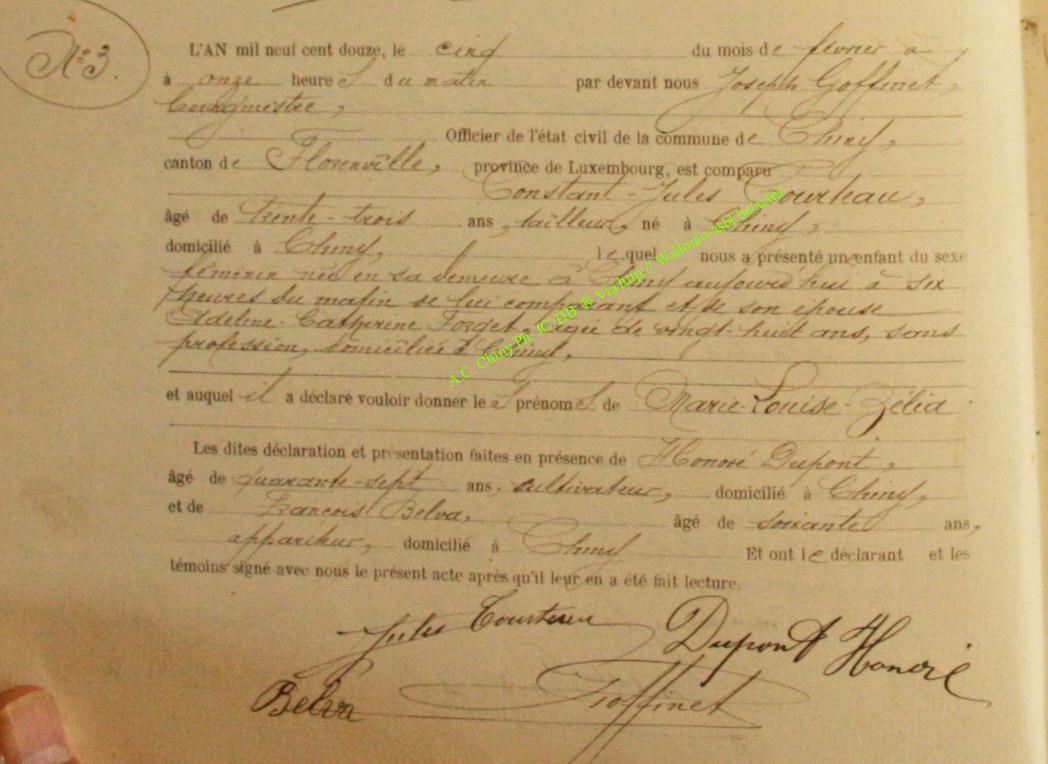 N° 3.
L'AN mil neuf cent douze, le cinq du mois de février à
à onze heures du matin par devant nous Joseph Goffinet,
bourgmestre,
Officier de l'état civil de la commune de Chiny,
canton de Florenville, province de Luxembourg, est comparu
Constant-Jules
âgé de trente-trois ans, tailleur, né à Chiny,
domicilié à Chiny, lequel nous a présenté un enfant du sexe
féminin née en sa demeure à Chiny aujourd'hui à six
heures du matin de lui comparant et de son épouse
Adeline-Catherine Forget, âgée de vingt-huit ans, sans
profession, domiciliée à Chiny,
et auquel il a déclaré vouloir donner les prénoms de Marie-Louise-Zélia
Les dites déclaration et présentation faites en présence de Honoré Dupont,
âgé de quarante-sept ans, cultivateur, domicilié à Chiny,
et de François Belva, âgé de soixante ans,
appariteur, domicilié à Chiny Et ont le déclarant et les
témoins signé avec nous le présent acte après qu'il leur en a été fait lecture.
Jules Dupont Honoré
Belva Goffinet
A.C Chiny Ph. JC-BB ® Via http:// Wallonia-asbl